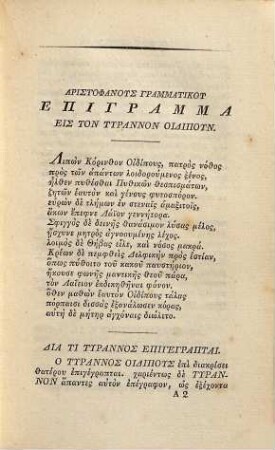 ΑΡΙΣΤΟΦΑΝΟΥΣ ΓΡΑΜΜΑΤΙΚΟΥ
ΕΠΙΓΡΑΜΜΑ
ΕΙΣ ΤΟΝ ΤΥΡΑΝΝΟΝ ΟΙΔΙΠΟΥΝ.
Λιπὼν Κόρινθον Οἰδίπους, πατρὸς νόθος
πρὸς τῶν ἁπάντων λοιδορούμενος ξένος,
ἦλθεν πυθέσθαι Πυθικῶν θεσπισμάτων,
ζητῶν ἑαυτὸν καὶ γένους φυτοσπόρον.
εὑρὼν δὲ τλήμων ἐν στεναῖς ἁμαξιτοῖς,
ἄκων ἔπεφνε Λάϊον γεννήτορα.
Σφιγγὸς δὲ δεινῆς θανάσιμον λύσας μέλος,
ᾔσχυνε μητρὸς ἀγνοουμένης λέχος.
λοιμὸς δὲ Θήβας εἷλε, καὶ νόσος μακρά.
Κρέων δὲ πεμφθεὶς Δελφικὴν πρὸς ἑστίαν,
ὅπως πύθοιτο τοῦ κακοῦ παυστήριον,
ἤκουσε φωνῆς μαντικῆς Θεοῦ πάρα,
τὸν Λαΐειον ἐκδικηθῆναι φόνον.
ὅθεν μαθὼν ἑαυτὸν Οἰδίπους τάλας
πόρπαισι δισσὰς ἐξανάλωσεν κόρας,
αὐτὴ δὲ μήτηρ ἀγχόναις διώλετο.
ΔΙΑ ΤΙ ΤΥΡΑΝΝΟΣ ΕΠΙΓΕΓΡΑΠΤΑΙ.
Ο ΤΥΡΑΝΝΟΣ ΟΙΔΙΠΟΥΣ ἐπὶ διακρίσει
θατέρου ἐπιγέγραπται. χαριέντως δὲ ΤΥΡΑΝ-
ΝΟΝ ἅπαντες αὐτὸν ἐπέγραφον, ὡς ἐξέχοντα
A 2